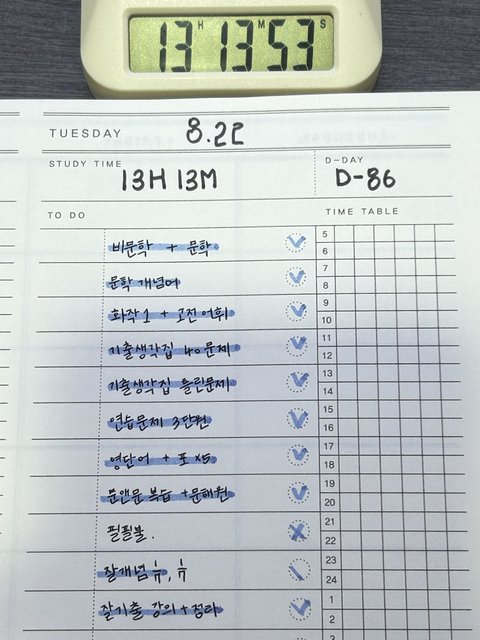 13H 13M 53S
TUESDAY 8.22
STUDY TIME 13H 13M
D-DAY D-86
TO DO
TIME TABLE
비문학 + 문학
문학 개념어
화작 1 + 고전 어휘
기출생각집 40문제
기출생각집 틀린문제
연습문제 3단원
영단어 + 포 x5
문앤문 복습 + 문해원
필필불.
잘개념
잘기출 강의 + 정리
5
6
7
8
9
10
11
12
13
14
15
16
17
18
19
20
21
22
23
24
1
2
3